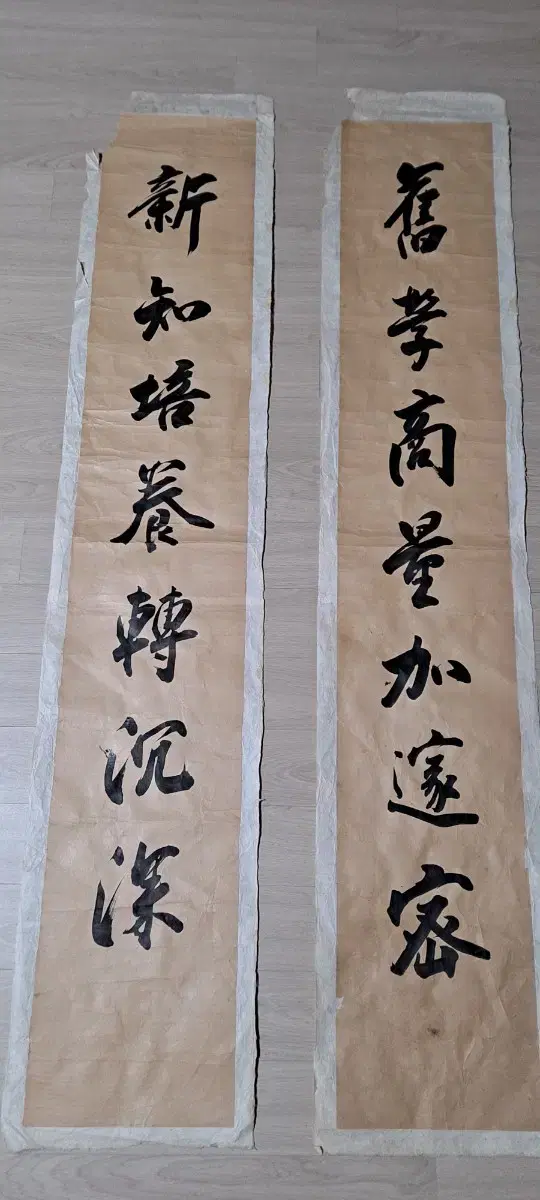 舊學商量加邃密
新知培養轉沉深